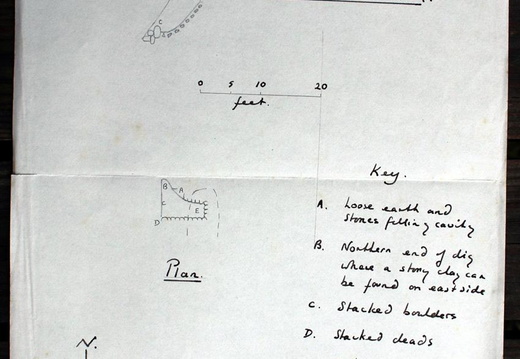 C
0 5 10 20
feet.
Key.
B A
C E
D
Plan.
A. Loose earth and
stones filling cavity
B. Northern end of dig
where a stony clay can
be found on east side
C. Stacked boulders
D. Stacked deads
N.